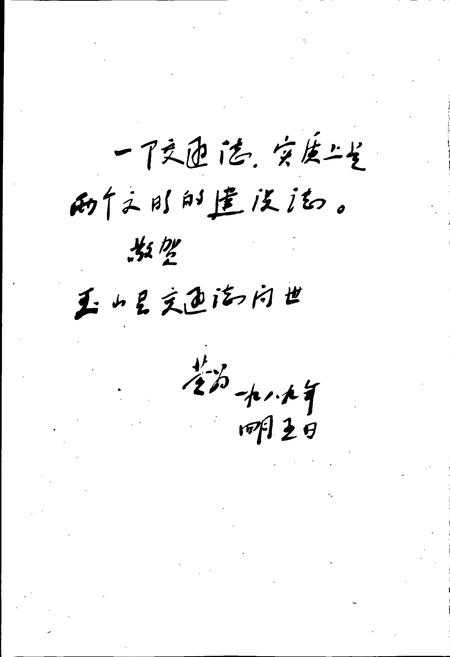 一个交通志，实质上是
两个文明的建设志。
敬贺
玉山县交通志问世
一九八九年
四月五日